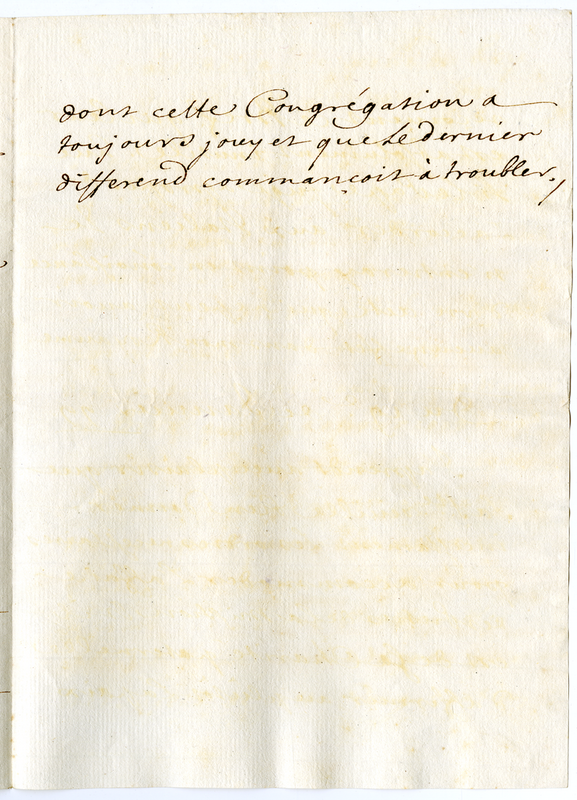 dont cette Congrégation a
toujours jouy et que le dernier
differend commançoit à troubler./